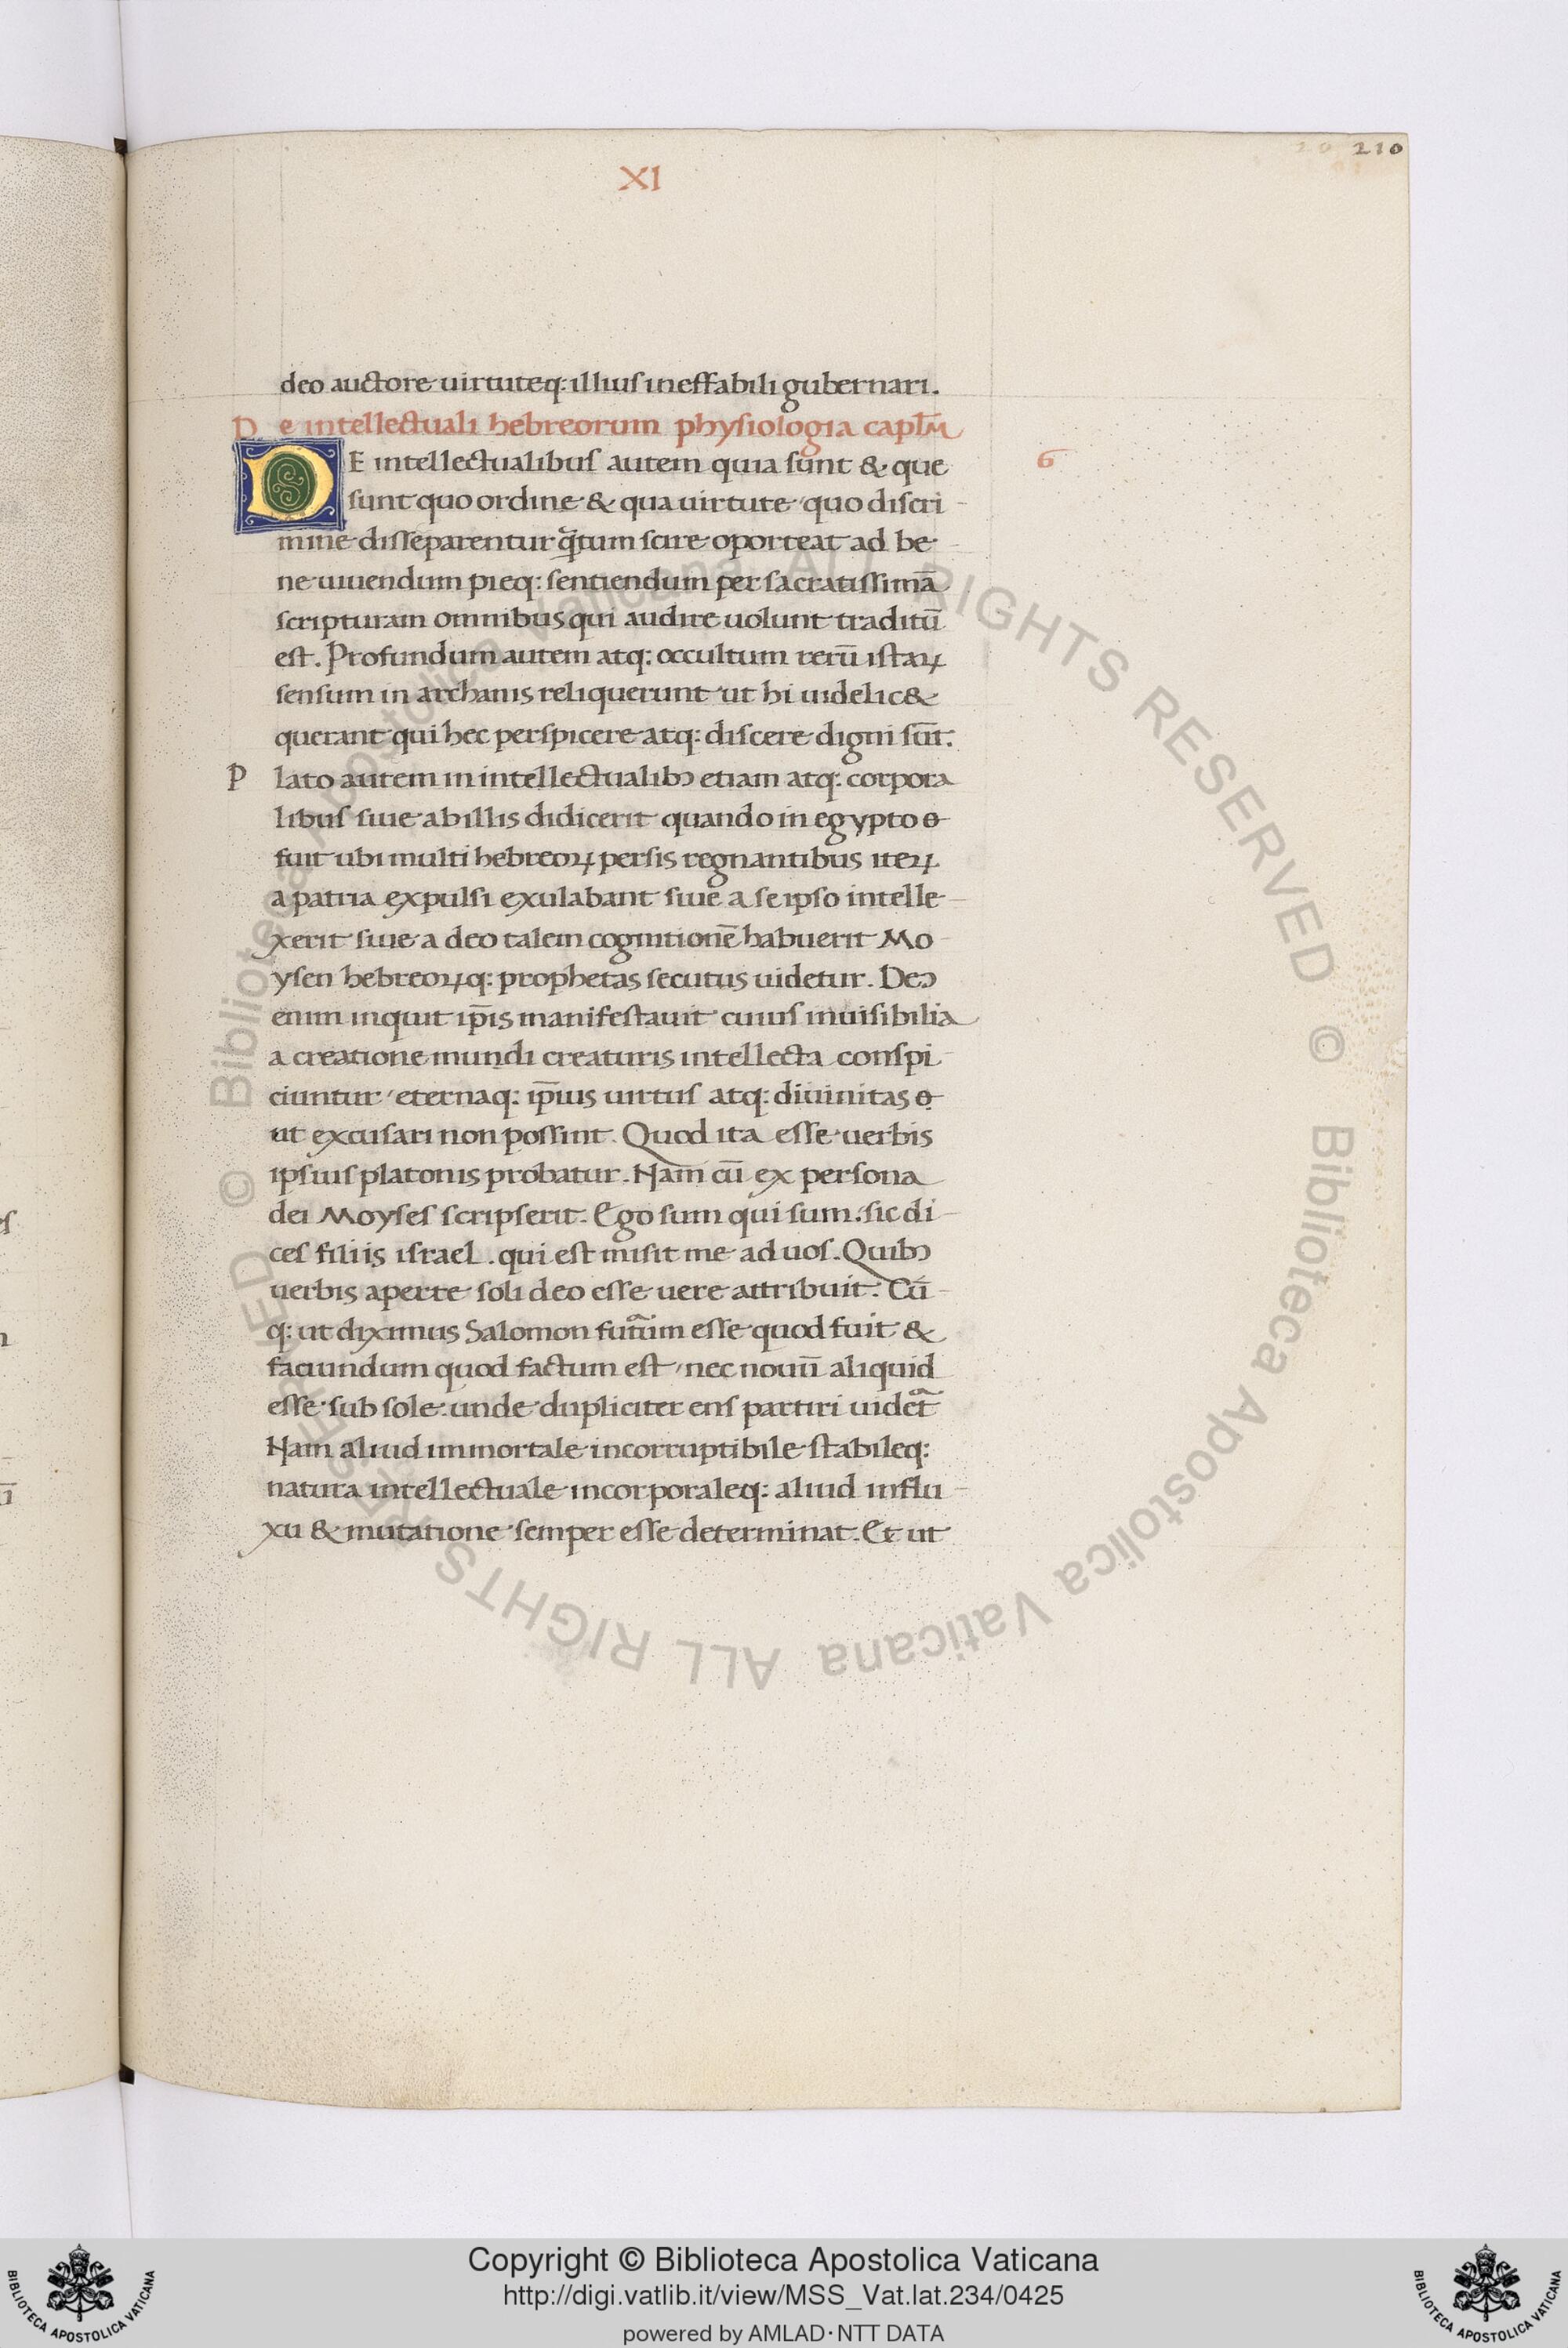 210
XI
deo auctore uirtuteq: illius ineffabili gubernari.
De intellectuali hebreorum physiologia capl̄m
6
DE intellectualibus autem quia sunt & que
sunt quo ordine & qua uirtute quo discri-
mine disseparentur qᷓtum scire oporteat ad be-
ne uiuendum pieq: sentiendum per sacratissimā
scripturam omnibus qui audire uolunt traditū
est. Profundum autem atq: occultum rerū istaꝝ
sensum in archanis reliquerunt ut hi uidelic&
querant qui hec perspicere atq: discere digni sūt.
Plato autem in intellectualibꝰ etiam atq: corpora
libus siue ab illis didicerit quando in egypto
fuit ubi multi hebreoꝝ persis regnantibus iteꝝ
a patria expulsi exulabant siue a se ipso intelle-
xerit siue a deo talem cognitionē habuerit Mo-
ysen hebreoꝝq: prophetas secutus uidetur. Deꝰ
enim inquit ip̄is manifestauit cuius inuisibilia
a creatione mundi creaturis intellecta conspi-
ciuntur eternaq: ip̄ius uirtus atq: diuinitas
ut excusari non possint. Quod ita esse uerbis
ipsius platonis probatur. Nam cū ex persona
dei Moyses scripserit. Ego sum qui sum: sic di-
ces filiis israel. qui est misit me ad uos. Quibꝰ
uerbis aperte soli deo esse uere attribuit. Cū-
q: ut diximus Salomon futᷓum esse quod fuit &
faciundum quod factum est, nec nouū aliquid
esse sub sole: unde dupliciter ens partiri uidetᷓ
Nam aliud immortale incorruptibile stabileq:
natura intellectuale incorporaleq: aliud influ-
xu & mutatione semper esse determinat. Et ut
© Biblioteca Apostolica Vaticana ALL RIGHTS RESERVED
© Biblioteca Apostolica Vaticana ALL RIGHTS RESERVED
Copyright © Biblioteca Apostolica Vaticana
http://digi.vatlib.it/view/MSS_Vat.lat.234/0425
powered by AMLAD·NTT DATA
BIBLIOTECA APOSTOLICA VATICANA
BIBLIOTECA APOSTOLICA VATICANA